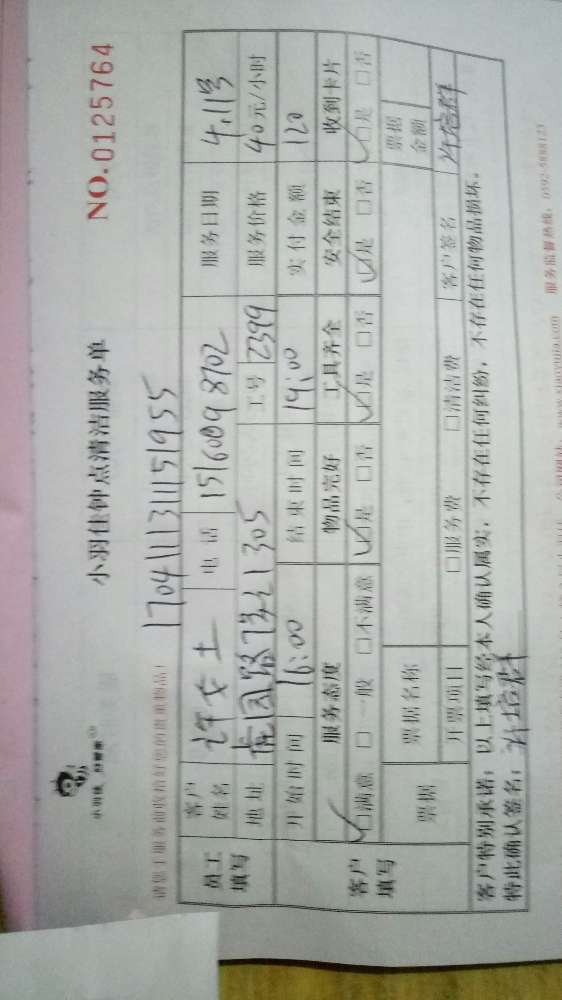 小羽佳钟点清洁服务单
NO.0125764
小羽佳
请您于服务前收拾好您的贵重物品!
170411131151955
员工填写 客户姓名 许女士 电话 15160098702 服务日期 4.11号
地址 1305 工号 2399 服务价格 40元/小时
开始时间 16:00 结束时间 19:00 实付金额 120
客户填写 服务态度 物品完好 工具齐全 安全结束 收到卡片
☑满意 □一般 □不满意 ☑是 □否 ☑是 □否 ☑是 □否 ☑是 □否
票据 票据名称 票据金额
开票项目 □服务费 □清洁费 客户签名
客户特别承诺:以上填写经本人确认属实,不存在任何纠纷,不存在任何物品损坏。
特此确认签名:
服务监督热线:0592-5888123